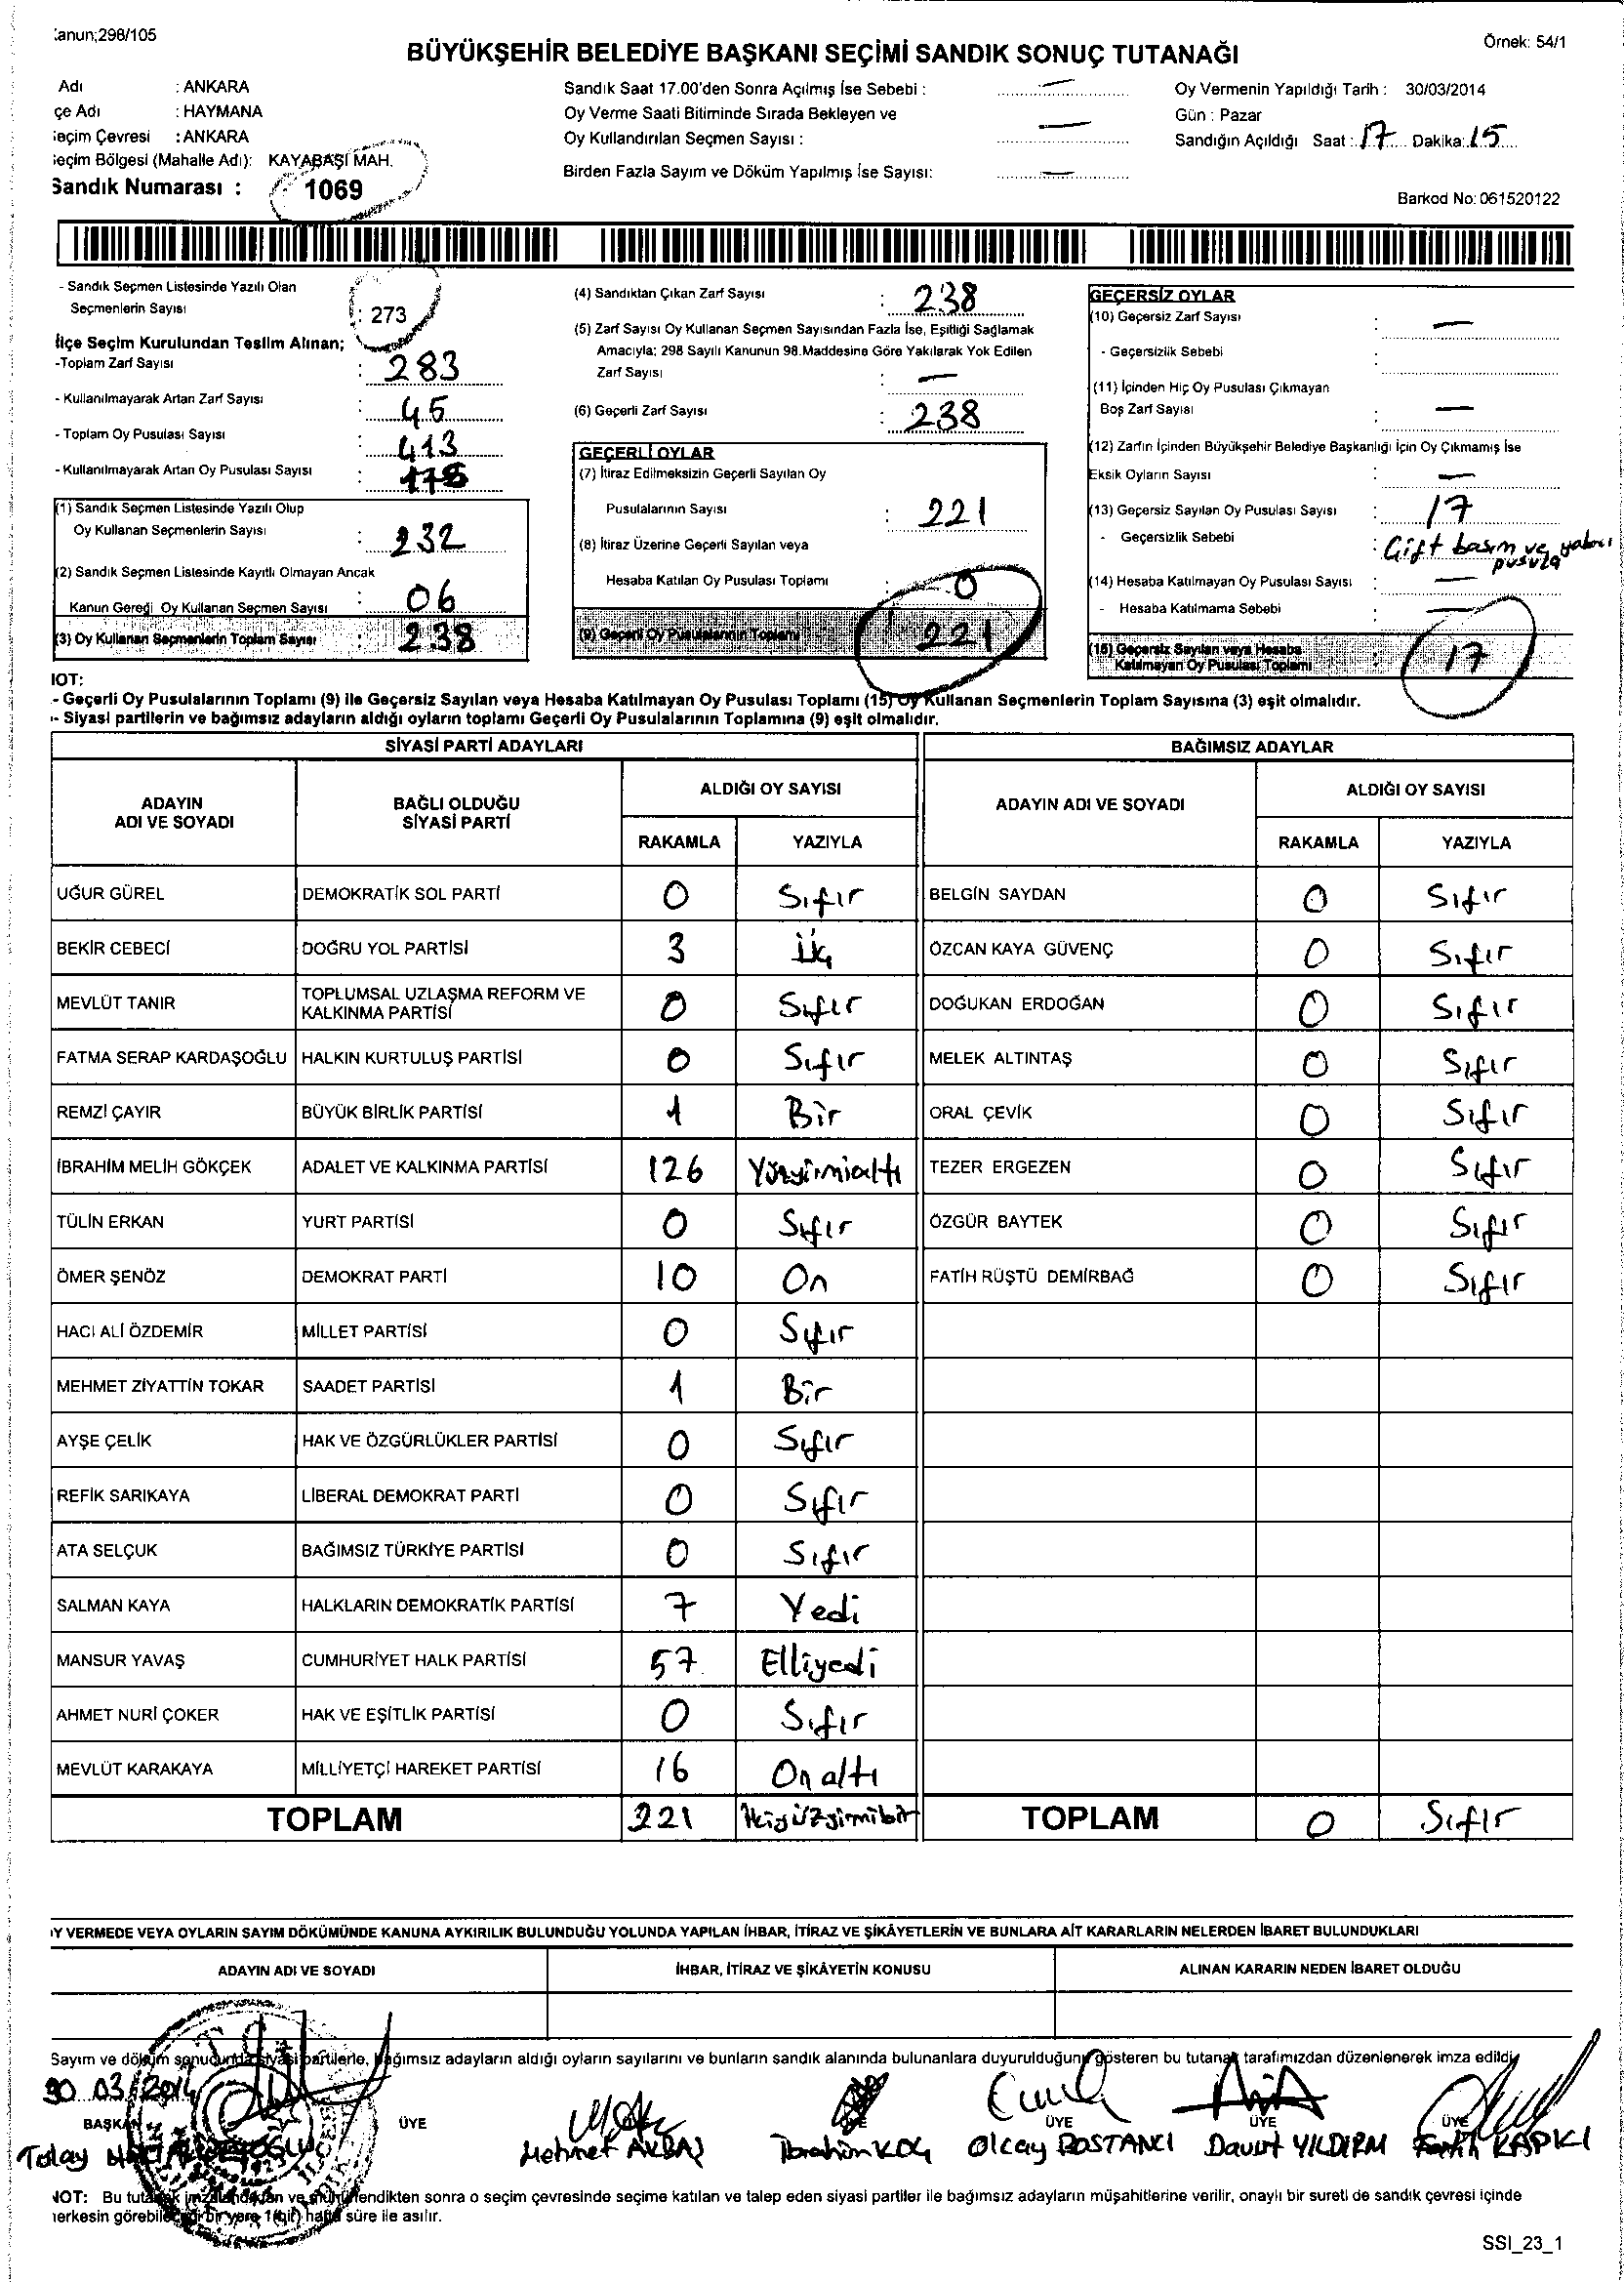 anun;298/105
Örnek: 54/1
BÜYÜKŞEHİR BELEDİYE BAŞKANI SEÇİMİ SANDIK SONUÇ TUTANAĞI
Adı : ANKARA
çe Adı : HAYMANA
eçim Çevresi : ANKARA
eçim Bölgesi (Mahalle Adı): KAYABAŞI MAH.
Sandık Numarası : 1069
Sandık Saat 17.00'den Sonra Açılmış İse Sebebi : —
Oy Verme Saati Bitiminde Sırada Bekleyen ve
Oy Kullandırılan Seçmen Sayısı : —
Birden Fazla Sayım ve Döküm Yapılmış İse Sayısı: —
Oy Vermenin Yapıldığı Tarih : 30/03/2014
Gün : Pazar
Sandığın Açıldığı Saat : 17 Dakika: 15
Barkod No: 061520122
- Sandık Seçmen Listesinde Yazılı Olan
Seçmenlerin Sayısı : 273
İlçe Seçim Kurulundan Teslim Alınan;
-Toplam Zarf Sayısı : 283
- Kullanılmayarak Artan Zarf Sayısı : 45
- Toplam Oy Pusulası Sayısı : 413
- Kullanılmayarak Artan Oy Pusulası Sayısı :
(1) Sandık Seçmen Listesinde Yazılı Olup
Oy Kullanan Seçmenlerin Sayısı : 232
(2) Sandık Seçmen Listesinde Kayıtlı Olmayan Ancak
Kanun Gereği Oy Kullanan Seçmen Sayısı : 06
(3) Oy Kullanan Seçmenlerin Toplam Sayısı : 238
(4) Sandıktan Çıkan Zarf Sayısı : 238
(5) Zarf Sayısı Oy Kullanan Seçmen Sayısından Fazla İse, Eşitliği Sağlamak
Amacıyla; 298 Sayılı Kanunun 98.Maddesine Göre Yakılarak Yok Edilen
Zarf Sayısı : —
(6) Geçerli Zarf Sayısı : 238
GEÇERLİ OYLAR
(7) İtiraz Edilmeksizin Geçerli Sayılan Oy
Pusulalarının Sayısı : 221
(8) İtiraz Üzerine Geçerli Sayılan veya
Hesaba Katılan Oy Pusulası Toplamı : 0
(9) Geçerli Oy Pusulalarının Toplamı 221
GEÇERSİZ OYLAR
(10) Geçersiz Zarf Sayısı : —
- Geçersizlik Sebebi :
(11) İçinden Hiç Oy Pusulası Çıkmayan
Boş Zarf Sayısı : —
(12) Zarfın İçinden Büyükşehir Belediye Başkanlığı İçin Oy Çıkmamış İse
Eksik Oyların Sayısı : —
(13) Geçersiz Sayılan Oy Pusulası Sayısı : 17
- Geçersizlik Sebebi : Çift basım ve yabancı
pusula
(14) Hesaba Katılmayan Oy Pusulası Sayısı : —
- Hesaba Katılmama Sebebi : —
(15) Geçersiz Sayılan veya Hesaba
Katılmayan Oy Pusulası Toplamı : 17
NOT:
- Geçerli Oy Pusulalarının Toplamı (9) ile Geçersiz Sayılan veya Hesaba Katılmayan Oy Pusulası Toplamı (15) Oy Kullanan Seçmenlerin Toplam Sayısına (3) eşit olmalıdır.
- Siyasi partilerin ve bağımsız adayların aldığı oyların toplamı Geçerli Oy Pusulalarının Toplamına (9) eşit olmalıdır.
SİYASİ PARTİ ADAYLARI BAĞIMSIZ ADAYLAR
ADAYIN ADI VE SOYADI BAĞLI OLDUĞU SİYASİ PARTİ ALDIĞI OY SAYISI ADAYIN ADI VE SOYADI ALDIĞI OY SAYISI
RAKAMLA YAZIYLA RAKAMLA YAZIYLA
UĞUR GÜREL DEMOKRATİK SOL PARTİ 0 Sıfır BELGİN SAYDAN 0 Sıfır
BEKİR CEBECİ DOĞRU YOL PARTİSİ 3 Üç ÖZCAN KAYA GÜVENÇ 0 Sıfır
MEVLÜT TANIR TOPLUMSAL UZLAŞMA REFORM VE KALKINMA PARTİSİ 0 Sıfır DOĞUKAN ERDOĞAN 0 Sıfır
FATMA SERAP KARDAŞOĞLU HALKIN KURTULUŞ PARTİSİ 0 Sıfır MELEK ALTINTAŞ 0 Sıfır
REMZİ ÇAYIR BÜYÜK BİRLİK PARTİSİ 1 Bir ORAL ÇEVİK 0 Sıfır
İBRAHİM MELİH GÖKÇEK ADALET VE KALKINMA PARTİSİ 126 Yüzyirmialtı TEZER ERGEZEN 0 Sıfır
TÜLİN ERKAN YURT PARTİSİ 0 Sıfır ÖZGÜR BAYTEK 0 Sıfır
ÖMER ŞENÖZ DEMOKRAT PARTİ 10 On FATİH RÜŞTÜ DEMİRBAĞ 0 Sıfır
HACI ALİ ÖZDEMİR MİLLET PARTİSİ 0 Sıfır
MEHMET ZİYATTİN TOKAR SAADET PARTİSİ 1 Bir
AYŞE ÇELİK HAK VE ÖZGÜRLÜKLER PARTİSİ 0 Sıfır
REFİK SARIKAYA LİBERAL DEMOKRAT PARTİ 0 Sıfır
ATA SELÇUK BAĞIMSIZ TÜRKİYE PARTİSİ 0 Sıfır
SALMAN KAYA HALKLARIN DEMOKRATİK PARTİSİ 7 Yedi
MANSUR YAVAŞ CUMHURİYET HALK PARTİSİ 57 Elliyedi
AHMET NURİ ÇOKER HAK VE EŞİTLİK PARTİSİ 0 Sıfır
MEVLÜT KARAKAYA MİLLİYETÇİ HAREKET PARTİSİ 16 On altı
TOPLAM 221 İkiyüzyirmibir TOPLAM 0 Sıfır
Y VERMEDE VEYA OYLARIN SAYIM DÖKÜMÜNDE KANUNA AYKIRILIK BULUNDUĞU YOLUNDA YAPILAN İHBAR, İTİRAZ VE ŞİKÂYETLERİN VE BUNLARA AİT KARARLARIN NELERDEN İBARET BULUNDUKLARI
ADAYIN ADI VE SOYADI İHBAR, İTİRAZ VE ŞİKÂYETİN KONUSU ALINAN KARARIN NEDEN İBARET OLDUĞU
Sayım ve döküm sonucunda siyasi partilerle, bağımsız adayların aldığı oyların sayılarını ve bunların sandık alanında bulunanlara duyurulduğunu gösteren bu tutanak tarafımızdan düzenlenerek imza edildi
30.03/2014
BAŞKAN ÜYE ÜYE ÜYE ÜYE ÜYE
Tolay Mehmet AKBAŞ İbrahim KOÇ Olcay BOSTANCI Davut YILDIRIM Fatih KAPKI
NOT: Bu tutanak imzalandıktan ve mühürlendikten sonra o seçim çevresinde seçime katılan ve talep eden siyasi partiler ile bağımsız adayların müşahitlerine verilir, onaylı bir sureti de sandık çevresi içinde
herkesin görebileceği bir yere 1 (bir) hafta süre ile asılır.
SSI_23_1